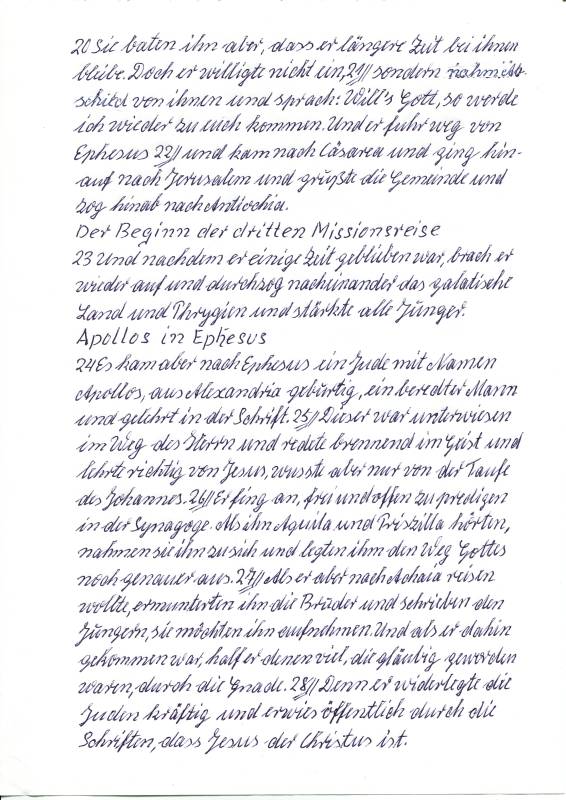 20 Sie baten ihn aber, dass er längere Zeit bei ihnen
bleibe. Doch er willigte nicht ein, 21// sondern nahm Ab-
schied von ihnen und sprach: Will's Gott, so werde
ich wieder zu euch kommen. Und er fuhr weg von
Ephesus 22// und kam nach Cäsarea und ging hin-
auf nach Jerusalem und grüßte die Gemeinde und
zog hinab nach Antiochia.
Der Beginn der dritten Missionsreise
23 Und nachdem er einige Zeit geblieben war, brach er
wieder auf und durchzog nacheinander das galatische
Land und Phrygien und stärkte alle Jünger.
Apollos in Ephesus
24 Es kam aber nach Ephesus ein Jude mit Namen
Apollos, aus Alexandria gebürtig, ein beredter Mann
und gelehrt in der Schrift. 25// Dieser war unterwiesen
im Weg des Herrn und redete brennend im Geist und
lehrte richtig von Jesus, wusste aber nur von der Taufe
des Johannes. 26// Er fing an, frei und offen zu predigen
in der Synagoge. Als ihn Aquila und Priszilla hörten,
nahmen sie ihn zu sich und legten ihm den Weg Gottes
noch genauer aus. 27// Als er aber nach Achaia reisen
wollte, ermunterten ihn die Brüder und schrieben den
Jüngern, sie möchten ihn aufnehmen. Und als er dahin
gekommen war, half er denen viel, die gläubig geworden
waren, durch die Gnade. 28// Denn er widerlegte die
Juden kräftig und erwies öffentlich durch die
Schriften, dass Jesus der Christus ist.